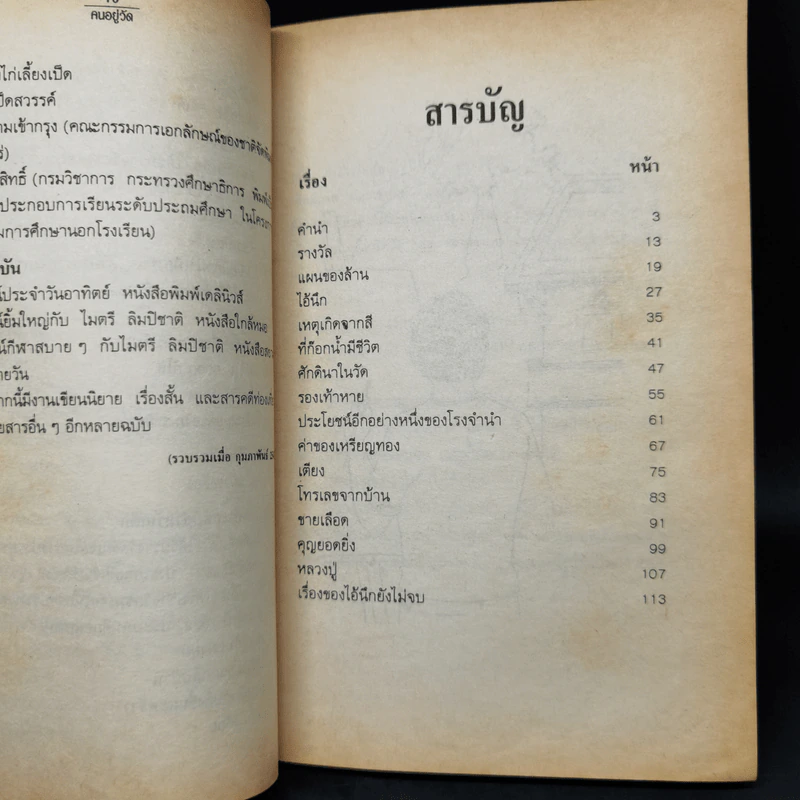 คนอยู่วัด
ไก่เลี้ยงเป็ด
ป็ดสวรรค์
ามเข้ากรุง (คณะกรรมการเอกลักษณ์ของชาติจัดพิ
สิทธิ์ (กรมวิชาการ กระทรวงศึกษาธิการ พิมพ์
ประกอบการเรียนระดับประถมศึกษา ในโครงกา
มการศึกษานอกโรงเรียน)
บัน
ประจำวันอาทิตย์ หนังสือพิมพ์เดลินิวส์
ยิ้มใหญ่กับ ไมตรี ลิมปิชาติ หนังสือใกล้หมอ
กีฬาสบาย ๆ กับไมตรี ลิมปิชาติ หนังสือ
ายวัน
ากนี้มีงานเขียนนิยาย เรื่องสั้น และสารคดีท่องเที่
ยสารอื่น ๆ อีกหลายฉบับ
(รวบรวมเมื่อ กุมภาพันธ์
สารบัญ
เรื่อง หน้า
คำนำ 3
รางวัล 13
แผนของล้าน 19
ไอ้นึก 27
เหตุเกิดจากสี 35
ที่ก๊อกน้ำมีชีวิต 41
ศักดินาในวัด 47
รองเท้าหาย 55
ประโยชน์อีกอย่างหนึ่งของโรงจำนำ 61
ค่าของเหรียญทอง 67
เตียง 75
โทรเลขจากบ้าน 83
ชายเลือด 91
คุญยอดยิ่ง 99
หลวงปู่ 107
เรื่องของไอ้นึกยังไม่จบ 113